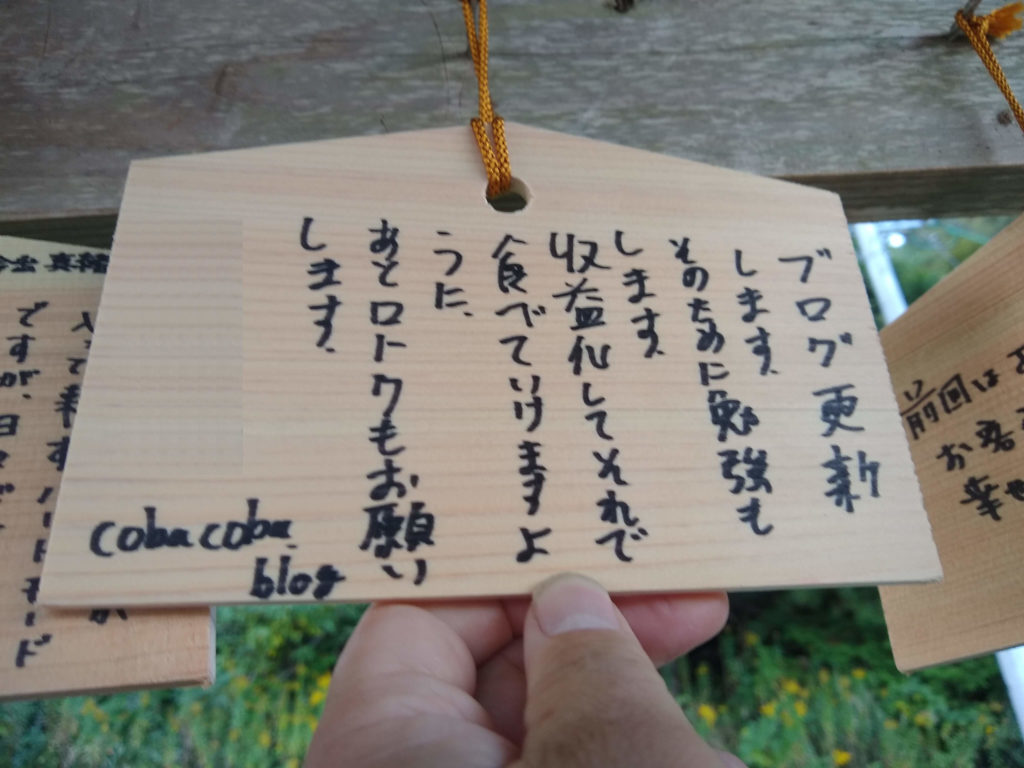 ブログ更新
します。
そのために勉強も
します。
収益化してそれで
食べていけますよ
うに、
あとロト7もお願い
します。
cobacoba.
blog
前回は
お客
幸せ
ですが、日々
ハードモード